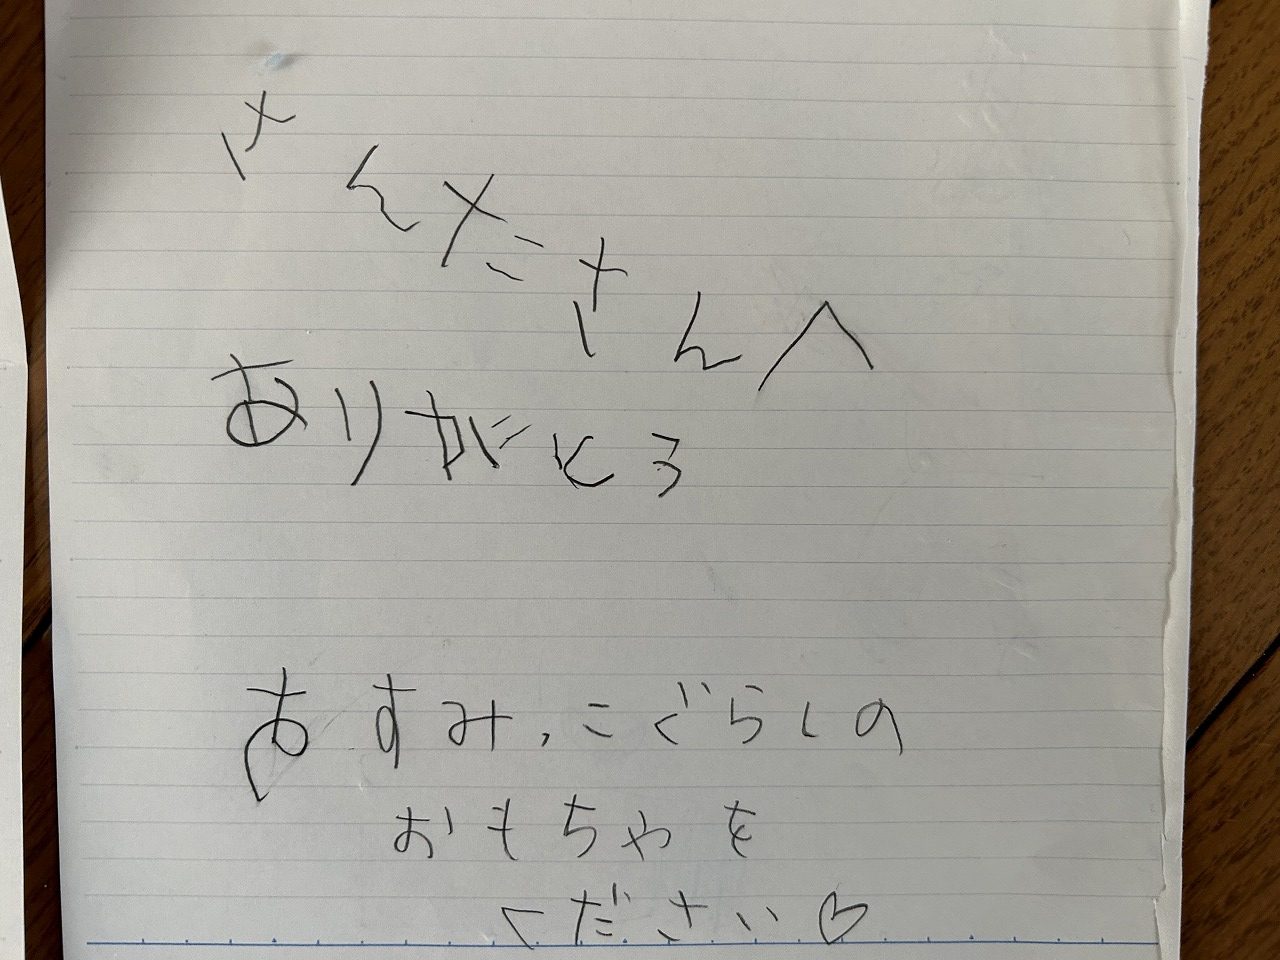 さんたさんへ
ありがとろ
あすみ,こぐらしの
おもちゃを
ください♡